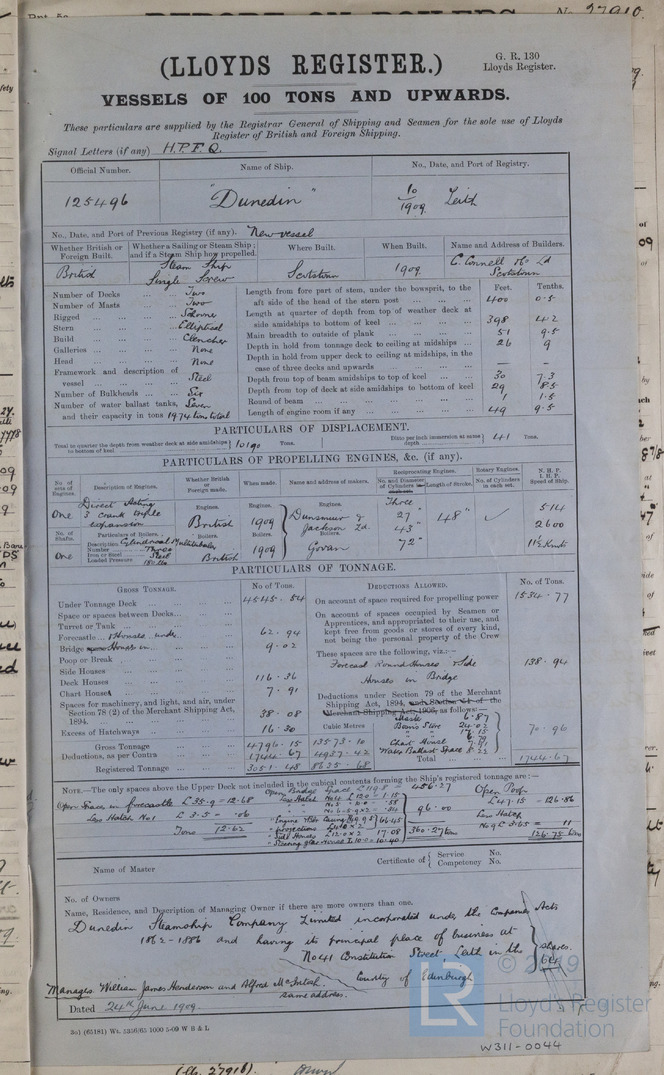 No 27910.
(LLOYDS REGISTER.)
G. R. 130
Lloyds Register.
VESSELS OF 100 TONS AND UPWARDS.
These particulars are supplied by the Registrar General of Shipping and Seamen for the sole use of Lloyds
Register of British and Foreign Shipping.
Signal Letters (if any) H.P.F.Q.
Official Number. Name of Ship. No., Date, and Port of Registry.
125496 "Dunedin" 10/1909 Leith
No., Date, and Port of Previous Registry (if any). New vessel
Whether British or Foreign Built. Whether a Sailing or Steam Ship; and if a Steam Ship how propelled. Where Built. When Built. Name and Address of Builders.
British Steam Ship Single Screw Scotstoun 1909 C. Connell & Co Ld Scotstoun
Feet. Tenths.
Number of Decks ... Two
Number of Masts ... Two
Rigged ... Schooner
Stern ... Elliptical
Build ... Clencher
Galleries ... None
Head ... None
Framework and description of vessel ... Steel
Number of Bulkheads ... Six
Number of water ballast tanks, Seven
and their capacity in tons 1974 tons total
Length from fore part of stem, under the bowsprit, to the aft side of the head of the stern post ... 400 0.5
Length at quarter of depth from top of weather deck at side amidships to bottom of keel ... 398 4.2
Main breadth to outside of plank ... 51 9.5
Depth in hold from tonnage deck to ceiling at midships ... 26 9
Depth in hold from upper deck to ceiling at midships, in the case of three decks and upwards — —
Depth from top of beam amidships to top of keel ... 30 7.3
Depth from top of deck at side amidships to bottom of keel 29 8.5
Round of beam ... 1 1.5
Length of engine room if any ... 49 9.5
PARTICULARS OF DISPLACEMENT.
Total to quarter the depth from weather deck at side amidships to bottom of keel 10190 Tons. Ditto per inch immersion at same depth 41 Tons.
PARTICULARS OF PROPELLING ENGINES, &c. (if any).
No. of sets of Engines. Description of Engines. Whether British or Foreign made. When made. Name and address of makers. Reciprocating Engines. No. and Diameter of Cylinders Length of Stroke. Rotary Engines. No. of Cylinders in each set. N.H.P. I.H.P. Speed of Ship.
One Direct Acting 3 crank triple expansion Engines. British Engines. 1909 Engines. Dunsmuir & Jackson Ld. Govan Three 27" 43" 72" 48" 514 2600 11½ Knots
No. of Shafts. Particulars of Boilers. Boilers. Boilers. Boilers.
One Description Cylindrical Multitubular Number Three Iron or Steel Steel Loaded Pressure 180 lbs. British 1909
PARTICULARS OF TONNAGE.
GROSS TONNAGE. No of Tons.
Under Tonnage Deck ... 4545.54
Space or spaces between Decks...
Turret or Tank ...
Forecastle ... 62.94
Bridge ... 9.02
Poop or Break ...
Side Houses ...
Deck Houses ... 116.36
Chart House ... 7.91
Spaces for machinery, and light, and air, under Section 78 (2) of the Merchant Shipping Act, 1894. 38.08
Excess of Hatchways 16.30
Cubic Metres
Gross Tonnage 4796.15 13573.10
Deductions, as per Contra 1744.67 4937.42
Registered Tonnage 3051.48 8635.68
DEDUCTIONS ALLOWED. No. of Tons.
On account of space required for propelling power 1534.77
On account of spaces occupied by Seamen or Apprentices, and appropriated to their use, and kept free from goods or stores of every kind, not being the personal property of the Crew
These spaces are the following, viz.:—
Forecastle Round Houses & Side Houses in Bridge 138.94
Deductions under Section 79 of the Merchant Shipping Act, 1894, and Section 54 of the Merchant Shipping Act, 1906, as follows:—
Bosns Store 24.02
Chart House 7.91
Water Ballast Space 70.96
Total ... 1744.67
NOTE.—The only spaces above the Upper Deck not included in the cubical contents forming the Ship's registered tonnage are:—
Open Space in forecastle £ 35.9 = 12.68
Less Hatch No1 £ 3.5 = .06
Tons 12.62
Open Bridge Space £ 119.8 = 456.27
96.00
360.27 tons
Open Poop £ 47.15 = 126.86
Less Hatch No 9 £ 3.65 = 11
126.75 tons
Name of Master
Certificate of { Service No. Competency No.
No. of Owners
Name, Residence, and Description of Managing Owner if there are more owners than one.
Dunedin Steamship Company Limited incorporated under the Companies Acts
1862–1886 and having its principal place of business at
No 41 Constitution Street, Leith in the
County of Edinburgh
64 shares.
Managers William James Henderson and Alfred McIntosh.
same address.
Dated 24th June 1909.
3o) (65181) Wt. 5356/65 1000 5-09 W B & L
© 2019
LR
Lloyd's Register
Foundation
W311-0044
(No. 27916.)